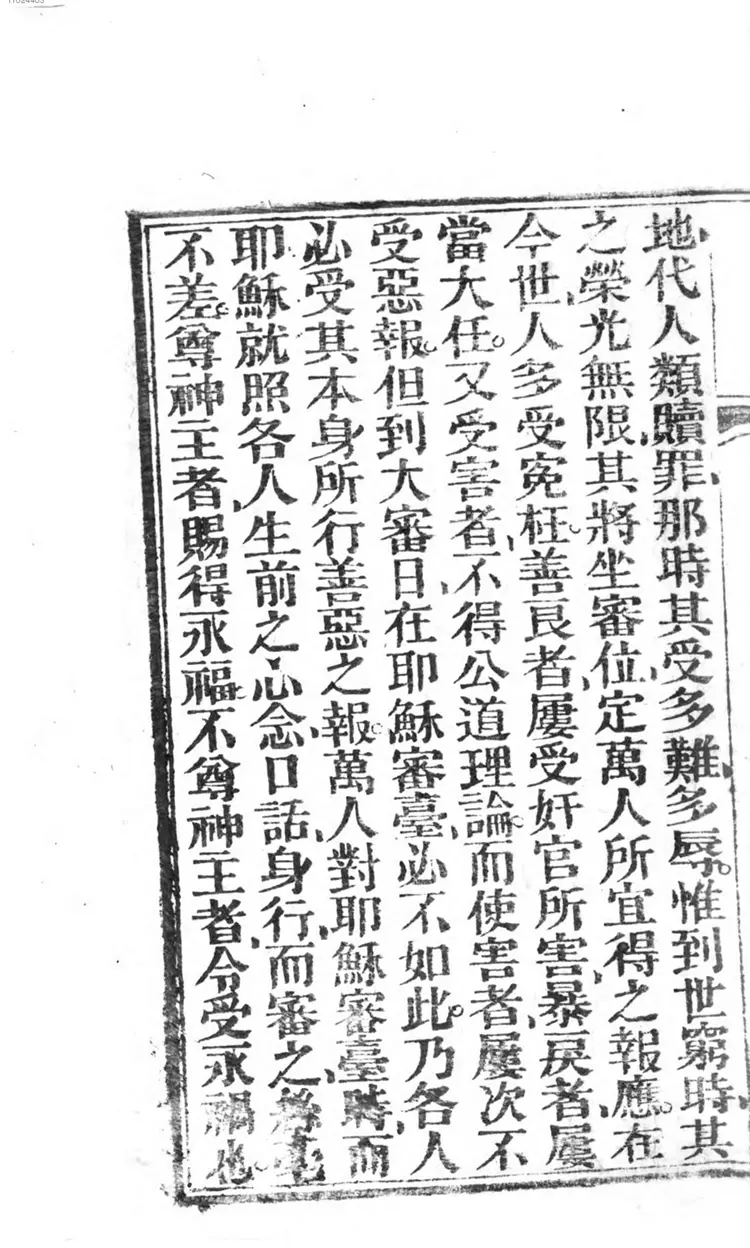 11024403
地、代人類贖罪、那時其受多難、多辱。惟到世窮時、其
之榮光無限、其將坐審位、定萬人所宜得之報應。在
今世、人多受冤枉。善良者、屢受奸官所害、暴戾者、屢
當大任。又受害者、不得公道理論。而使害者、屢次不
受惡報。但到大審日、在耶穌審臺、必不如此。乃各人
必受其本身所行善惡之報。萬人對耶穌審臺時、而
耶穌就照各人生前之心念口話、身行、而審之、絲毫
不差。尊神主者、賜得永福。不尊神主者、令受永禍也。